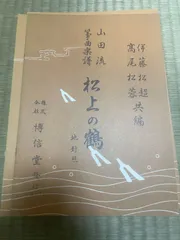 伊藤松超
高尾松蓉 共編
山田流
箏曲楽譜
松上の鶴
株式会社 博信堂